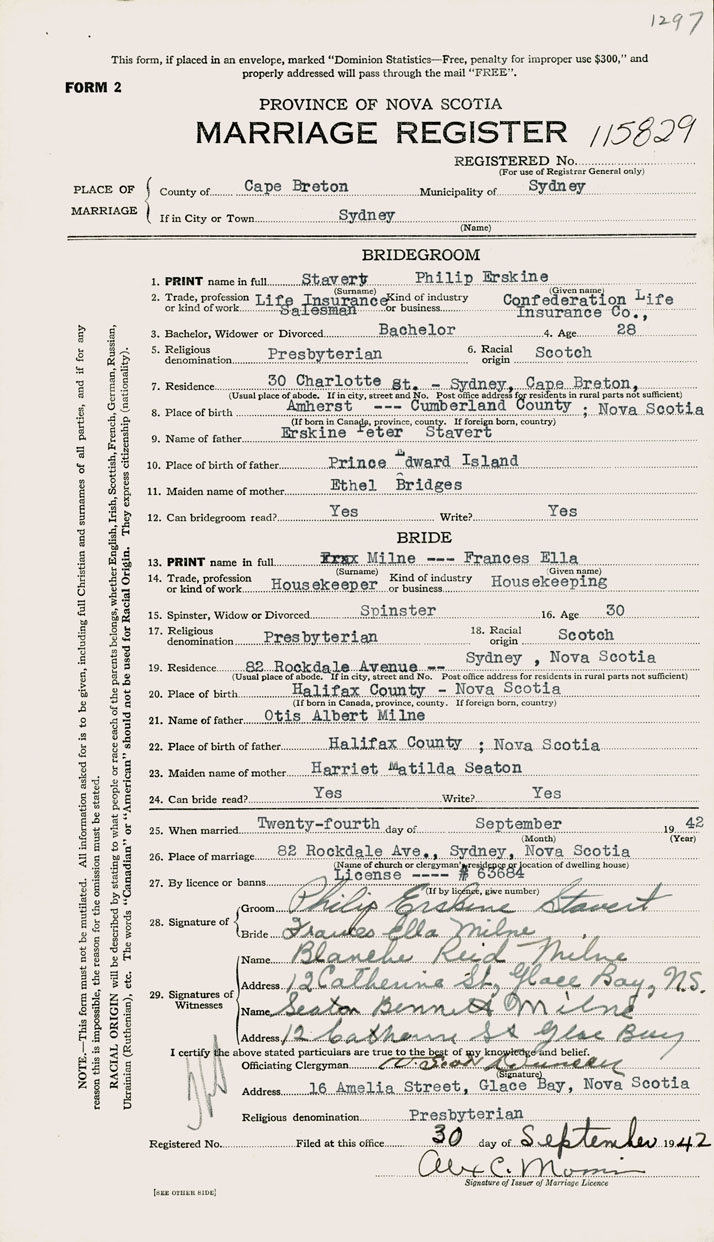 1297
This form, if placed in an envelope, marked "Dominion Statistics—Free, penalty for improper use $300," and
properly addressed will pass through the mail "FREE".
FORM 2
PROVINCE OF NOVA SCOTIA
MARRIAGE REGISTER 115829
REGISTERED No.
(For use of Registrar General only)
PLACE OF MARRIAGE
County of Cape Breton Municipality of Sydney
If in City or Town Sydney
(Name)
BRIDEGROOM
1. PRINT name in full Stavert Philip Erskine
(Surname) (Given name)
2. Trade, profession or kind of work Life Insurance Salesman Kind of industry or business Confederation Life Insurance Co.,
3. Bachelor, Widower or Divorced Bachelor 4. Age 28
5. Religious denomination Presbyterian 6. Racial origin Scotch
7. Residence 30 Charlotte St. - Sydney, Cape Breton,
(Usual place of abode. If in city, street and No. Post office address for residents in rural parts not sufficient)
8. Place of birth Amherst --- Cumberland County ; Nova Scotia
(If born in Canada, province, county. If foreign born, country)
9. Name of father Erskine Peter Stavert
10. Place of birth of father Prince Edward Island
11. Maiden name of mother Ethel Bridges
12. Can bridegroom read? Yes Write? Yes
BRIDE
13. PRINT name in full Milne --- Frances Ella
(Surname) (Given name)
14. Trade, profession or kind of work Housekeeper Kind of industry or business Housekeeping
15. Spinster, Widow or Divorced Spinster 16. Age 30
17. Religious denomination Presbyterian 18. Racial origin Scotch
19. Residence 82 Rockdale Avenue -- Sydney , Nova Scotia
(Usual place of abode. If in city, street and No. Post office address for residents in rural parts not sufficient)
20. Place of birth Halifax County - Nova Scotia
(If born in Canada, province, county. If foreign born, country)
21. Name of father Otis Albert Milne
22. Place of birth of father Halifax County ; Nova Scotia
23. Maiden name of mother Harriet Matilda Seaton
24. Can bride read? Yes Write? Yes
25. When married Twenty-fourth day of September 1942
(Month) (Year)
26. Place of marriage 82 Rockdale Ave., Sydney, Nova Scotia
(Name of church or clergyman's residence or location of dwelling house)
27. By licence or banns License ---- # 63684
(If by licence, give number)
28. Signature of
Groom Philip Erskine Stavert
Bride Frances Ella Milne
29. Signatures of Witnesses
Name Blanche Reid Milne
Address 12 Catherine St, Glace Bay, N.S.
Name Seaton Bennett Milne
Address 12 Catherine St Glace Bay
I certify the above stated particulars are true to the best of my knowledge and belief.
Officiating Clergyman
(Signature)
Address 16 Amelia Street, Glace Bay, Nova Scotia
Religious denomination Presbyterian
Registered No. Filed at this office 30 day of September 1942
Alex C.
Signature of Issuer of Marriage Licence
[SEE OTHER SIDE]
NOTE.—This form must not be mutilated. All information asked for is to be given, including full Christian and surnames of all parties, and if for any
reason this is impossible, the reason for the omission must be stated.
RACIAL ORIGIN will be described by stating to what people or race each of the parents belongs, whether English, Irish, Scottish, French, German, Russian,
Ukrainian (Ruthenian), etc. The words "Canadian" or "American" should not be used for Racial Origin. They express citizenship (nationality).